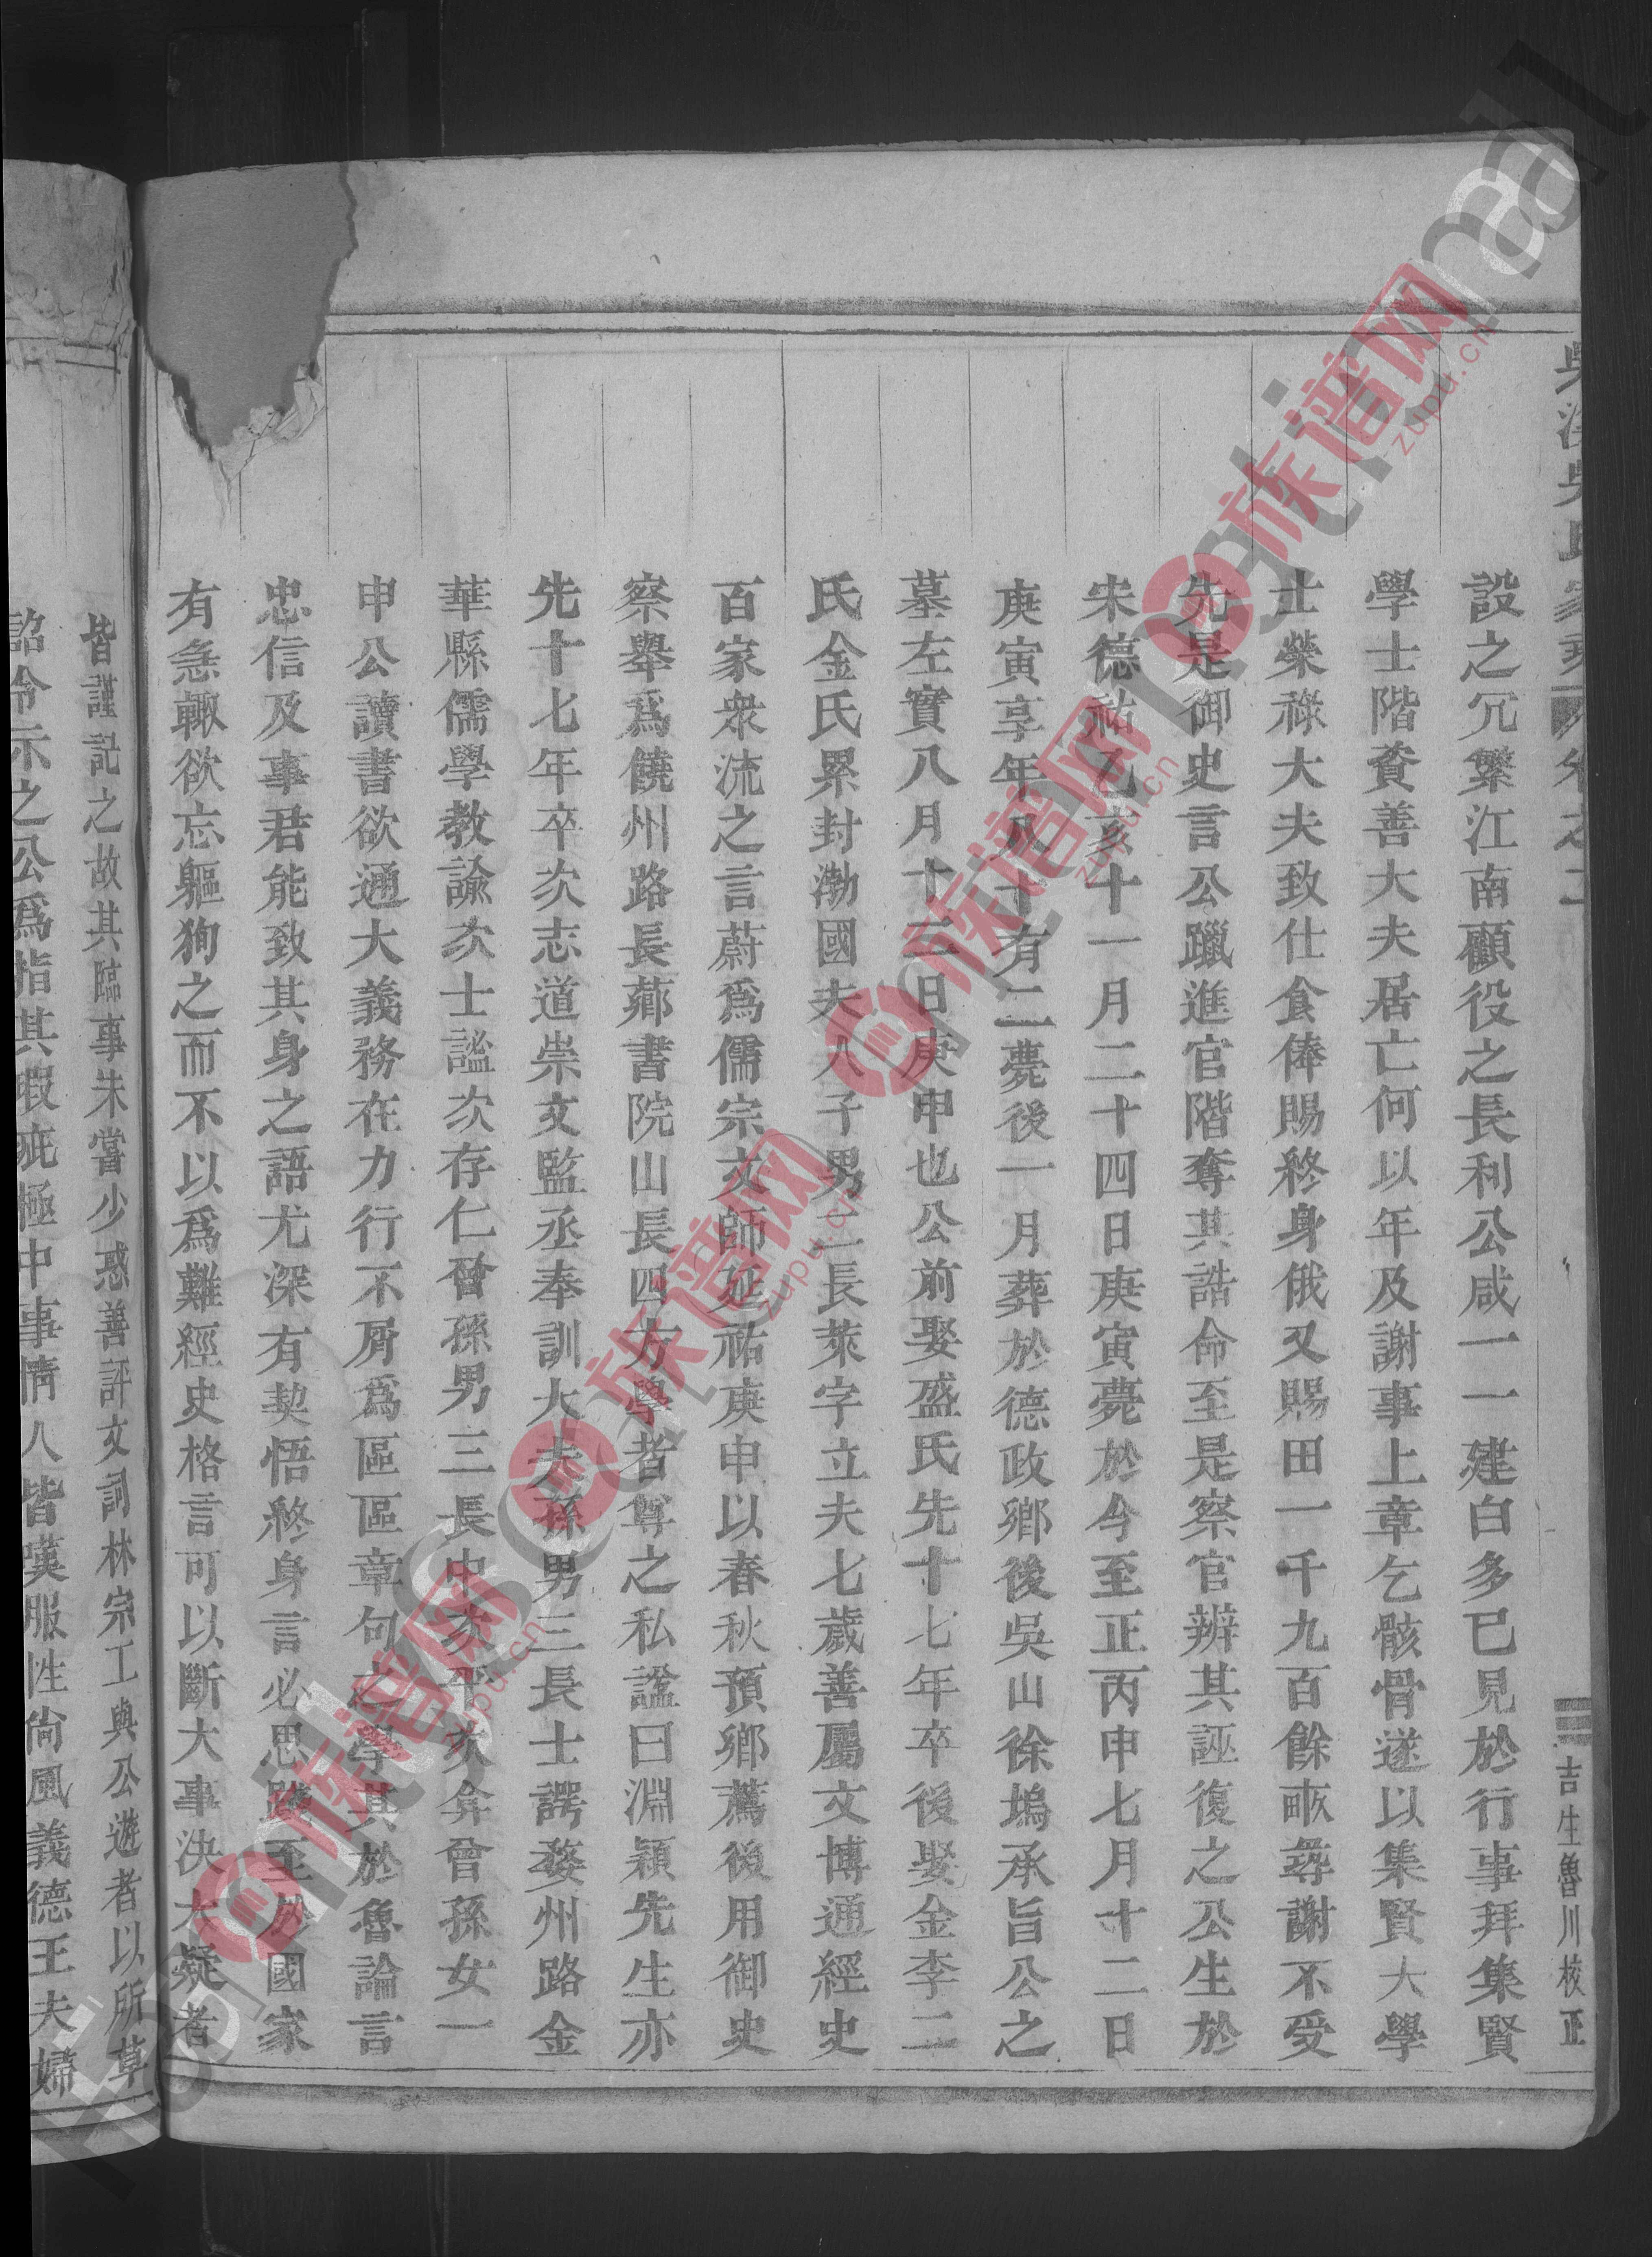 設之冗繁江南顧役之長利公咸一一建白多已見於行事拜集賢
學士階資善大夫居亡何以年及謝事上章乞骸骨遂以集賢大學
士榮祿大夫致仕食俸賜終身俄又賜田一千九百餘畝尋謝不受
先是御史言公躐進官階奪其誥命至是察官辨其誣復之公生於
宋德祐乙亥十一月二十四日庚寅薨於今至正丙申七月十二日
庚寅享年八十有二薨後一月葬於德政鄉後吳山徐塢承旨公之
墓左實八月十二日庚申也公前娶盛氏先十七年卒後娶金李二
氏金氏累封渤國夫人子男二長萊字立夫七歲善屬文博通經史
百家衆流之言蔚爲儒宗文師延祐庚申以春秋預鄉薦後用御史
察舉爲饒州路長薌書院山長四方學者尊之私諡曰淵穎先生亦
先十七年卒次志道崇文監丞奉訓大夫孫男三長士諤婺州路金
華縣儒學教諭次士謐次存仁晉孫男三長中次平次弇曾孫女一
申公讀書欲通大義務在力行不屑爲區區章句之學其於魯論言
忠信及事君能致其身之語尤深有契悟終身言必思踐至於國家
有急輙欲忘軀狥之而不以爲難經史格言可以斷大事決大疑者
皆謹記之故其臨事未嘗少惑善評文詞林宗工與公遊者以所草
詔令示之公爲指其瑕疵極中事情人皆嘆服性尚風義德王夫婦
吉生魯川校正